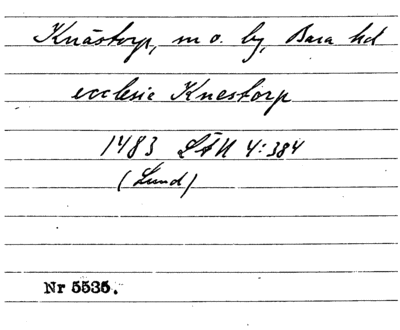 Knästorp, sn o. by, Bara hd
ecclesie Knestorp
1483 LÄU 4:384
(Lund)
Nr 5535.